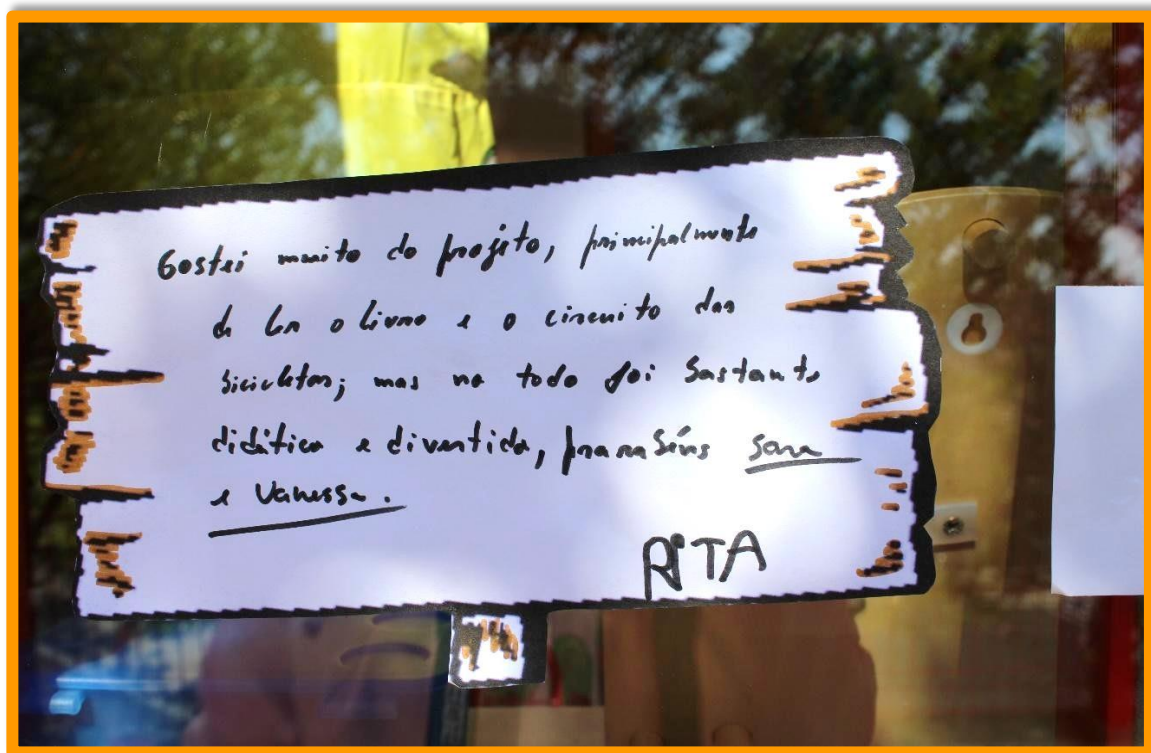 Gostei muito do projeto, principalmente
de ler o livro e o circuito das
bicicletas; mas no todo foi bastante
didática e divertida, pranabéns Sara
e Vanessa.
RITA